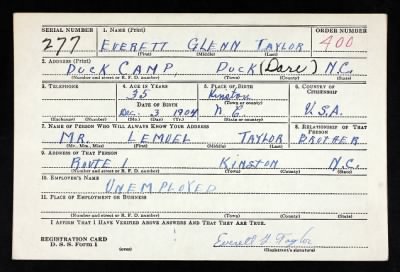 SERIAL NUMBER 1. NAME (Print) ORDER NUMBER
277 EVERETT GLENN TAYLOR 400
(First) (Middle) (Last)
2. ADDRESS (Print)
DUCK CAMP, DUCK (Dare) N.C.
(Number and street or R. F. D. number) (Town) (County) (State)
3. TELEPHONE 4. AGE IN YEARS 5. PLACE OF BIRTH 6. COUNTRY OF CITIZENSHIP
35 Kinston
DATE OF BIRTH (Town or county)
Dec. 3, 1904 N.C. U.S.A.
(Exchange) (Number) (Mo.) (Day) (Yr.) (State or country)
7. NAME OF PERSON WHO WILL ALWAYS KNOW YOUR ADDRESS 8. RELATIONSHIP OF THAT PERSON
MR. LEMUEL TAYLOR BROTHER
(Mr., Mrs., Miss) (First) (Middle) (Last)
9. ADDRESS OF THAT PERSON
ROUTE 1 KINSTON N.C.
(Number and street or R. F. D. number) (Town) (County) (State)
10. EMPLOYER'S NAME
UNEMPLOYED
11. PLACE OF EMPLOYMENT OR BUSINESS
(Number and street or R. F. D. number) (Town) (County) (State)
I AFFIRM THAT I HAVE VERIFIED ABOVE ANSWERS AND THAT THEY ARE TRUE.
REGISTRATION CARD
D. S. S. Form 1 (over) Everett G. Taylor
(Registrant's signature)